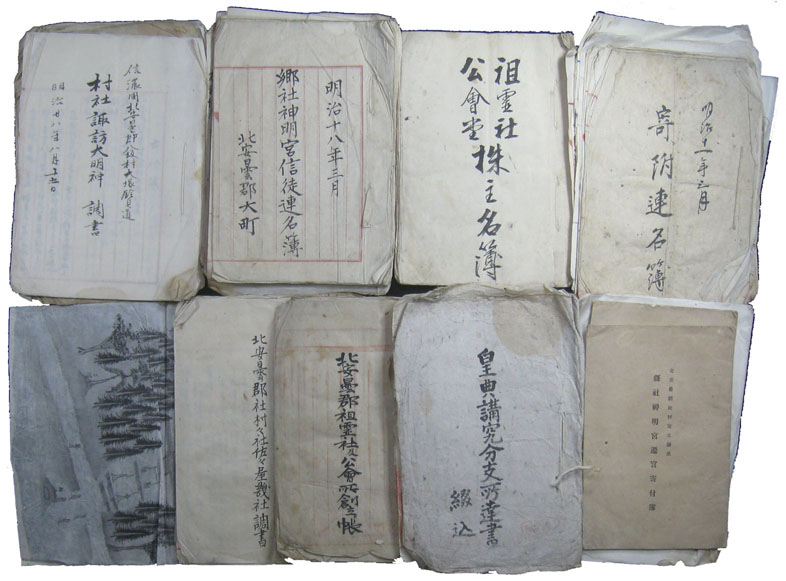 信濃国北安曇郡
村社諏訪大明神 調書
明治廿八年八月十五日
明治十八年三月
郷社神明宮信徒連名簿
北安曇郡大町
祖霊社
公會堂
株主名簿
明治十一年三月
寄附連名簿
北安曇郡社村々社佐々屋裁社調書
北安曇郡祖霊社及公會所創立帳
皇典講究分支所達書
綴込
縣社神明宮造営寄付簿